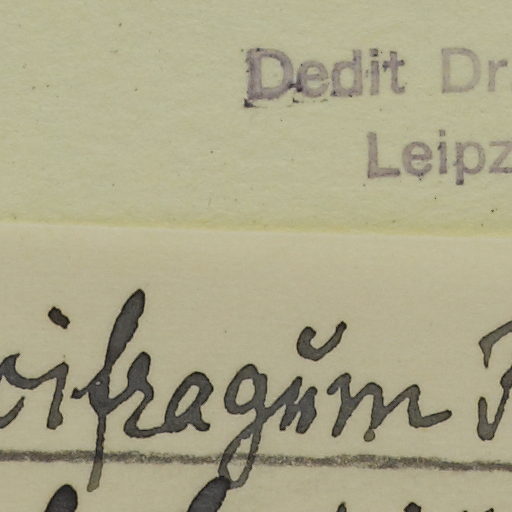 Dedit Dr.
Leipz
cifragŭm